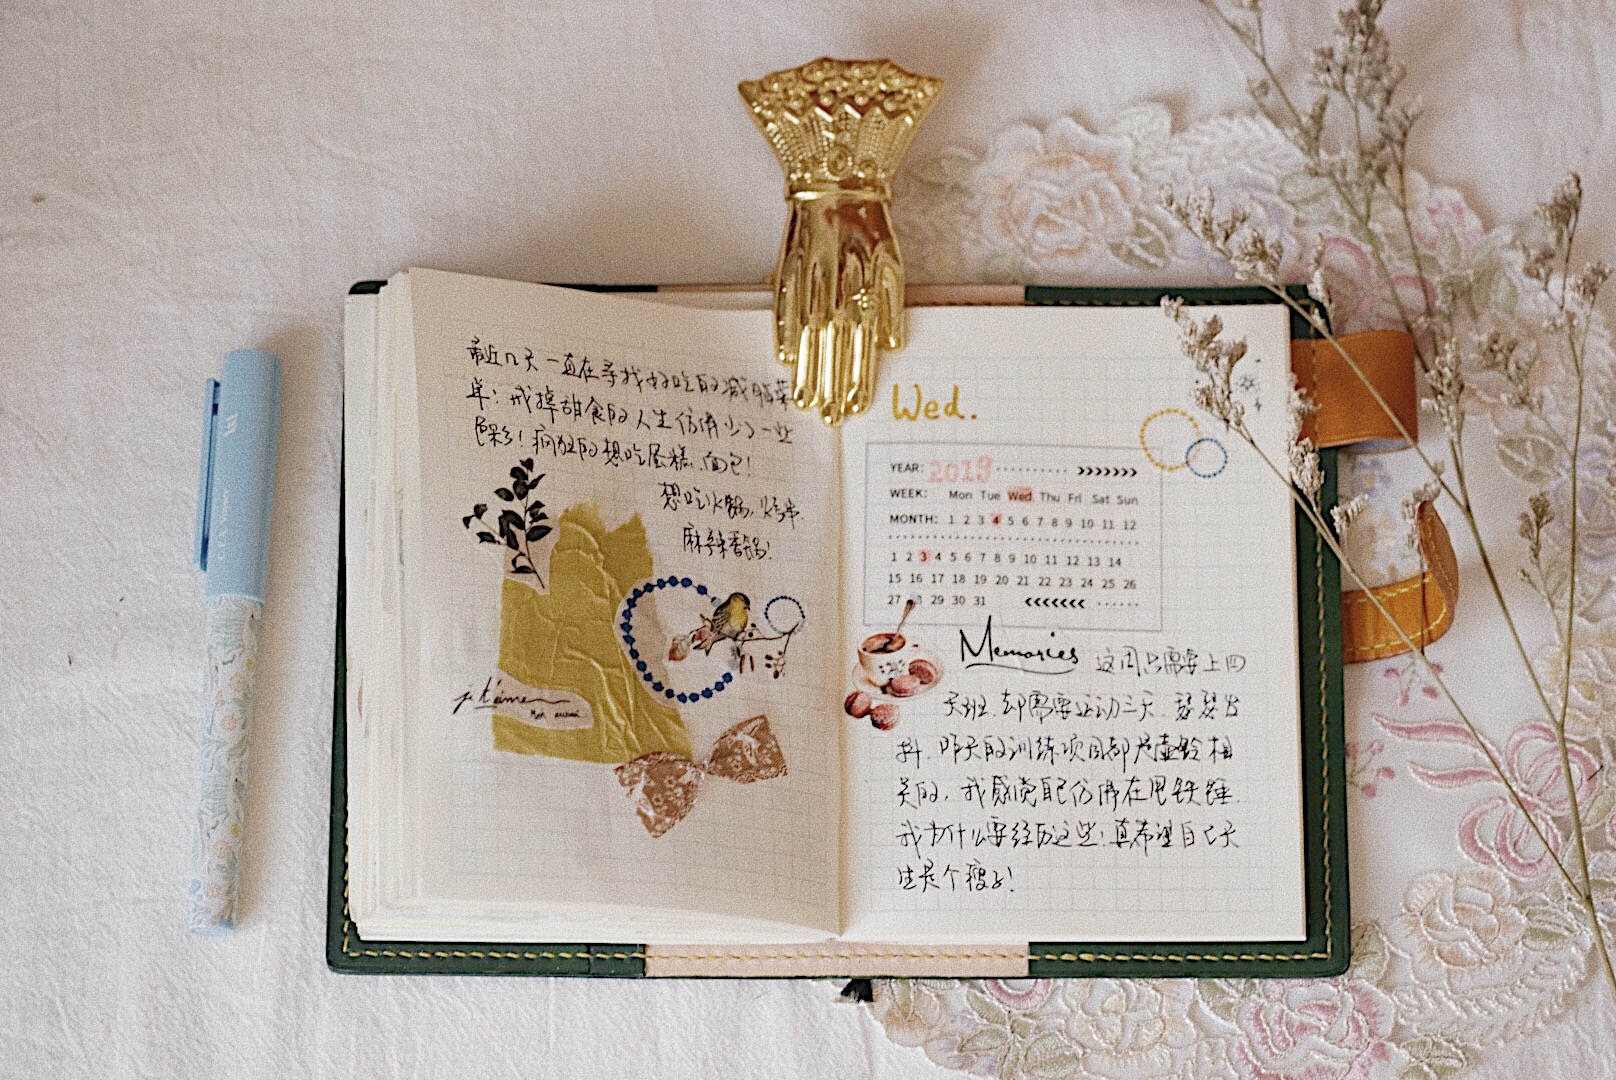 最近几天一直在寻找好吃的减脂菜
单；戒掉甜食的人生仿佛少了一些
色彩！疯狂的想吃蛋糕、面包！
想吃火锅，烤串.
麻辣香锅！
je t'aime
Wed.
YEAR: 2019
WEEK: Mon Tue Wed Thu Fri Sat Sun
MONTH: 1 2 3 4 5 6 7 8 9 10 11 12
1 2 3 4 5 6 7 8 9 10 11 12 13 14
15 16 17 18 19 20 21 22 23 24 25 26
27 28 29 30 31
Memories 这周只需要上四
天班.却需要运动三天.瑟瑟发
抖.昨天的训练项目都是壶铃相
关的，我感觉自己仿佛在甩铁锤.
我为什么要经历这些；真希望自己天
生是个瘦子！